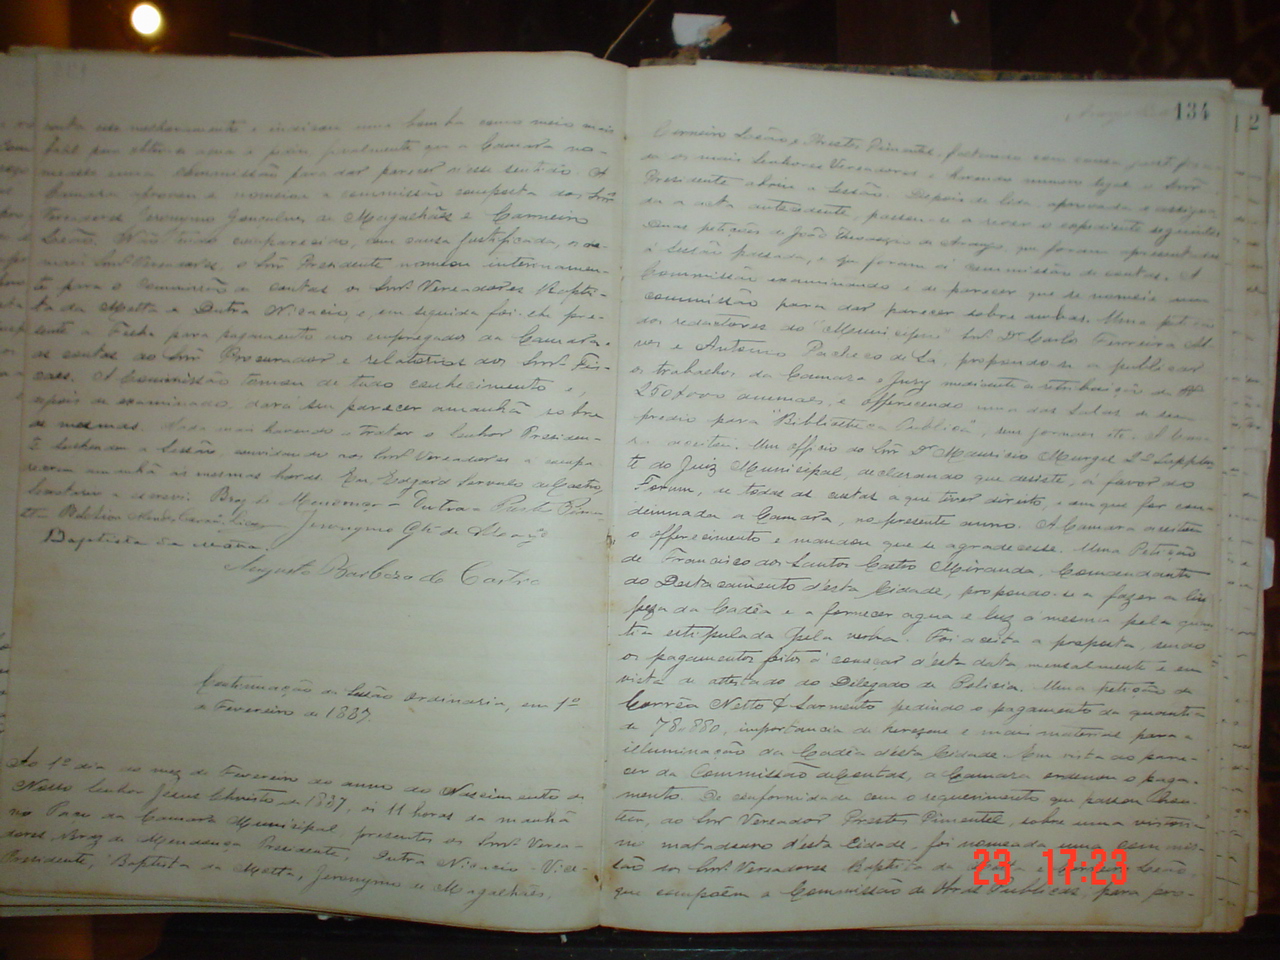 conta esse melhoramento e indicou uma bomba como meio mais
facil para obter-se agua e pedia finalmente que a Camara no-
measse uma commissão para dar parecer n'esse sentido. A
Camara approvou e nomeou a commissão composta dos Snrs.
Vereadores Jeronymo Gonçalves de Magalhães e Carneiro
Leão. Não tendo comparecido, com causa justificada, os de-
mais Snrs. Vereadores, o Snr. Presidente nomeou interinamen-
te para a Commissão de contas os Snrs. Vereadores Baptis-
ta da Motta e Dutra Nicacio, e em seguida foi-lhe pre-
sente a Folha para pagamento aos empregados da Camara e
as contas do Snr. Procurador e relatorios dos Snrs. Fis-
caes. A Commissão tomou de tudo conhecimento e,
depois de examinado, dará seu parecer amanhã sobre
as mesmas. Nada mais havendo a tratar o Senhor Presiden-
te levantou a Sessão, convidando aos Snrs. Vereadores a compa-
recerem amanhã ás mesmas horas. Eu Edgard Servulo de Castro,
Secretario a escrevi. Braz de Mendonça - Dutra - Prestes Pimen-
tel -
Baptista da Motta.
Augusto Barboza de Castro
Continuação da Sessão Ordinaria, em 1º
de Fevereiro de 1887.
Ao 1º dia do mez de Fevereiro do anno do Nascimento de
Nosso Senhor Jesus Christo de 1887, ás 11 horas da manhã
no Paço da Camara Municipal, presentes os Snrs. Verea-
dores, Braz de Mendonça Presidente, Dutra Nicacio Vice-
Presidente, Baptista da Motta, Jeronymo de Magalhães,
134
Carneiro Leão e Prestes Pimentel, faltando com causa participa-
da os mais Senhores Vereadores e havendo numero legal o Snr.
Presidente abriu a Sessão. Depois de lida, approvada e assigna-
da a acta antecedente, passou-se a rever o expediente seguinte:
Duas petições de João Theodosio de Araujo, que foram apresentadas
á Sessão passada, e que foram á commissão de contas. A
Commissão examinando é de parecer que se nomeie uma
commissão para dar parecer sobre ambas. Uma petição
dos redactores do "Municipio" Snrs. Dr. Carlo Ferreira Al-
ves e Antonio Pacheco de Sá, propondo-se a publicar
os trabalhos da Camara e Jury mediante a retribuição de Rs
250$000 annuaes, e offerecendo uma das salas de seu
predio para "Bibliotheca Publica", seus jornaes etc. A Cama-
ra aceitou. Um officio do Snr. Dr. Mauricio Murgel 2º Supplen-
te do Juiz Municipal, declarando que desiste, á favor do
Forum, de todas as custas a que tiver direito, e em que for con-
demnada a Camara, no presente anno. A Camara aceitou
o offerecimento e mandou que se agradecesse. Uma Petição
de Francisco dos Santos Castro Miranda, Comandante
do Destacamento d'esta Cidade, propondo-se a fazer a lim-
peza da Cadêa e a fornecer agua e luz á mesma pela quan-
tia estipulada pela verba. Foi aceita a proposta, sendo
os pagamentos feitos á começar d'esta data mensalmente e em
vista de attestado do Delegado de Policia. Uma petição de
Corrêa Netto & Sarmento pedindo o pagamento da quantia
de 78.880, importancia de kerosene e mais materias para a
illuminação da Cadêa d'esta Cidade. Em vista do pare-
cer da Commissão de Contas, a Camara ordenou o paga-
mento. De conformidade com o requerimento que passou
ao Snr. Vereador Prestes Pimentel, sobre uma vistoria
no matadouro d'esta Cidade, foi nomeada uma commis-
são dos Snrs. Vereadores Baptista da Leão,
que compõem a Commissão de Obras Publicas, para pro-
23 17:23